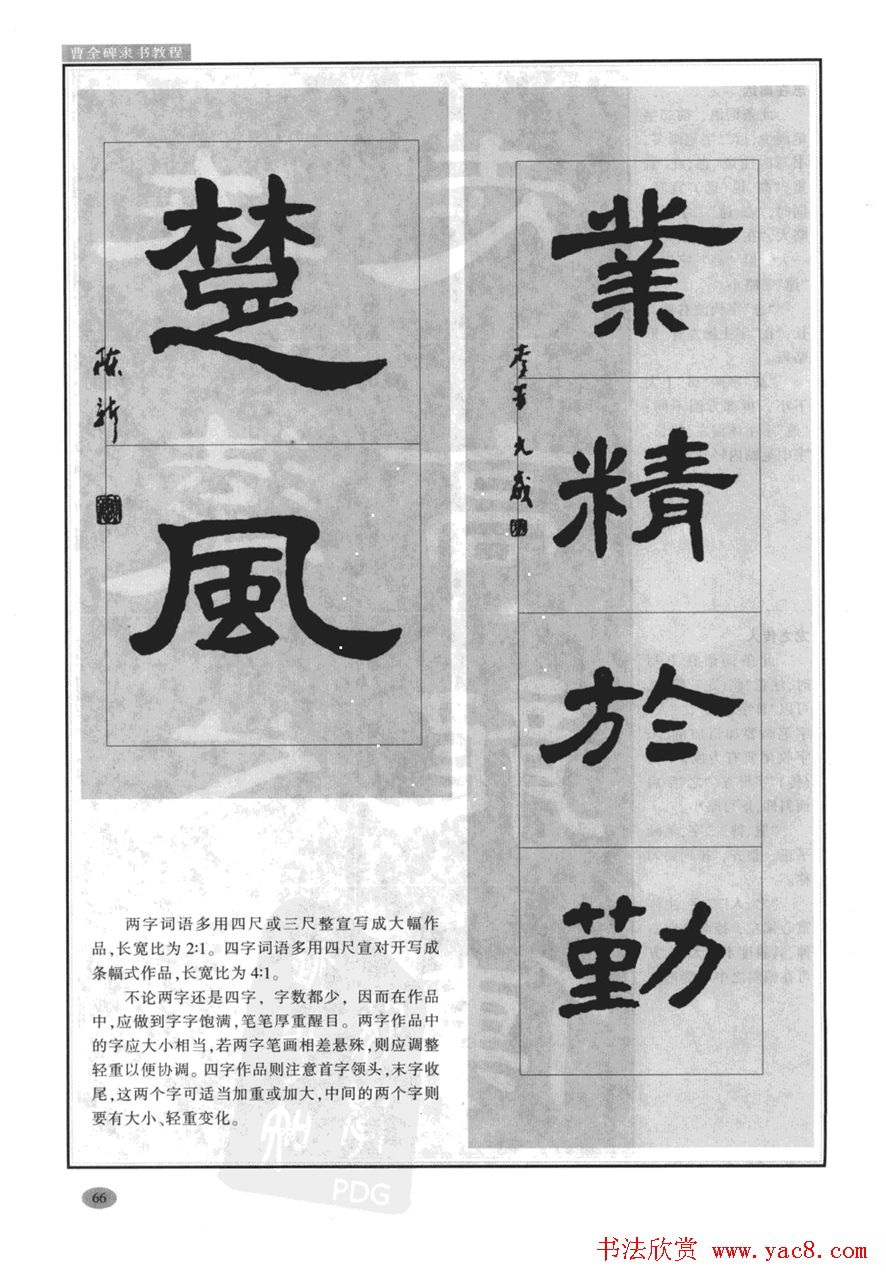 曹全碑隶书教程
業
精
於
勤
楚
風
陈新
两字词语多用四尺或三尺整宣写成大幅作
品,长宽比为 2:1。四字词语多用四尺宣对开写成
条幅式作品,长宽比为 4:1。
不论两字还是四字，字数都少，因而在作品
中,应做到字字饱满,笔笔厚重醒目。两字作品中
的字应大小相当,若两字笔画相差悬殊,则应调整
轻重以便协调。四字作品则注意首字领头,末字收
尾,这两个字可适当加重或加大,中间的两个字则
要有大小、轻重变化。
PDG
66
书法欣赏 www.yac8.com